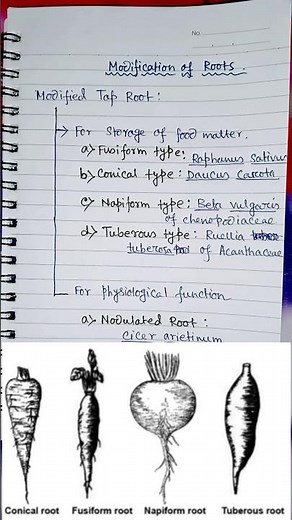 No.
Modification of Roots.
Modified Tap Root:
For Storage of food matter.
a) Fusiform type: Raphanus sativus
b) Conical type: Daucus carota
c) Napiform type: Beta vulgaris
of chenopodiaceae
d) Tuberous type: Ruellia
tuberosa of Acanthaceae
For physiological function
a) Nodulated Root:
Cicer arietinum
Conical root Fusiform root Napiform root Tuberous root